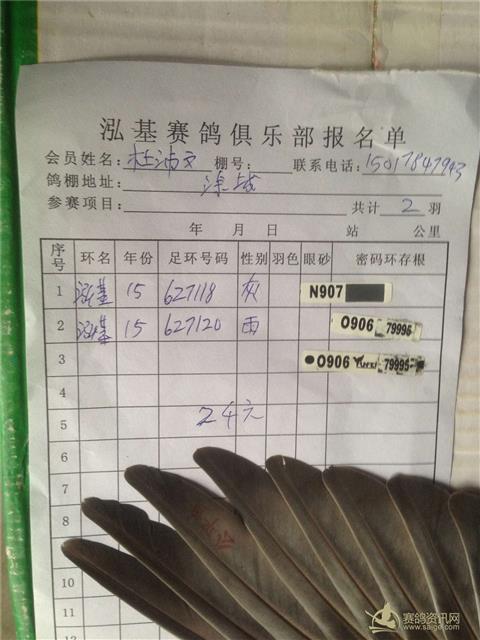 泓基赛鸽俱乐部报名单
会员姓名：杜沛文 棚号： 联系电话：15017847943
鸽棚地址： 涂城
参赛项目： 共计 2 羽
年 月 日 站 公里
序号 环名 年份 足环号码 性别 羽色 眼砂 密码环存根
1 泓基 15 627118 灰 N907
2 泓基 15 627120 雨 O906 79995
3 O906 79995
4
5 24元
6
7
8
10
11
12
赛鸽资讯网
www.saige.com